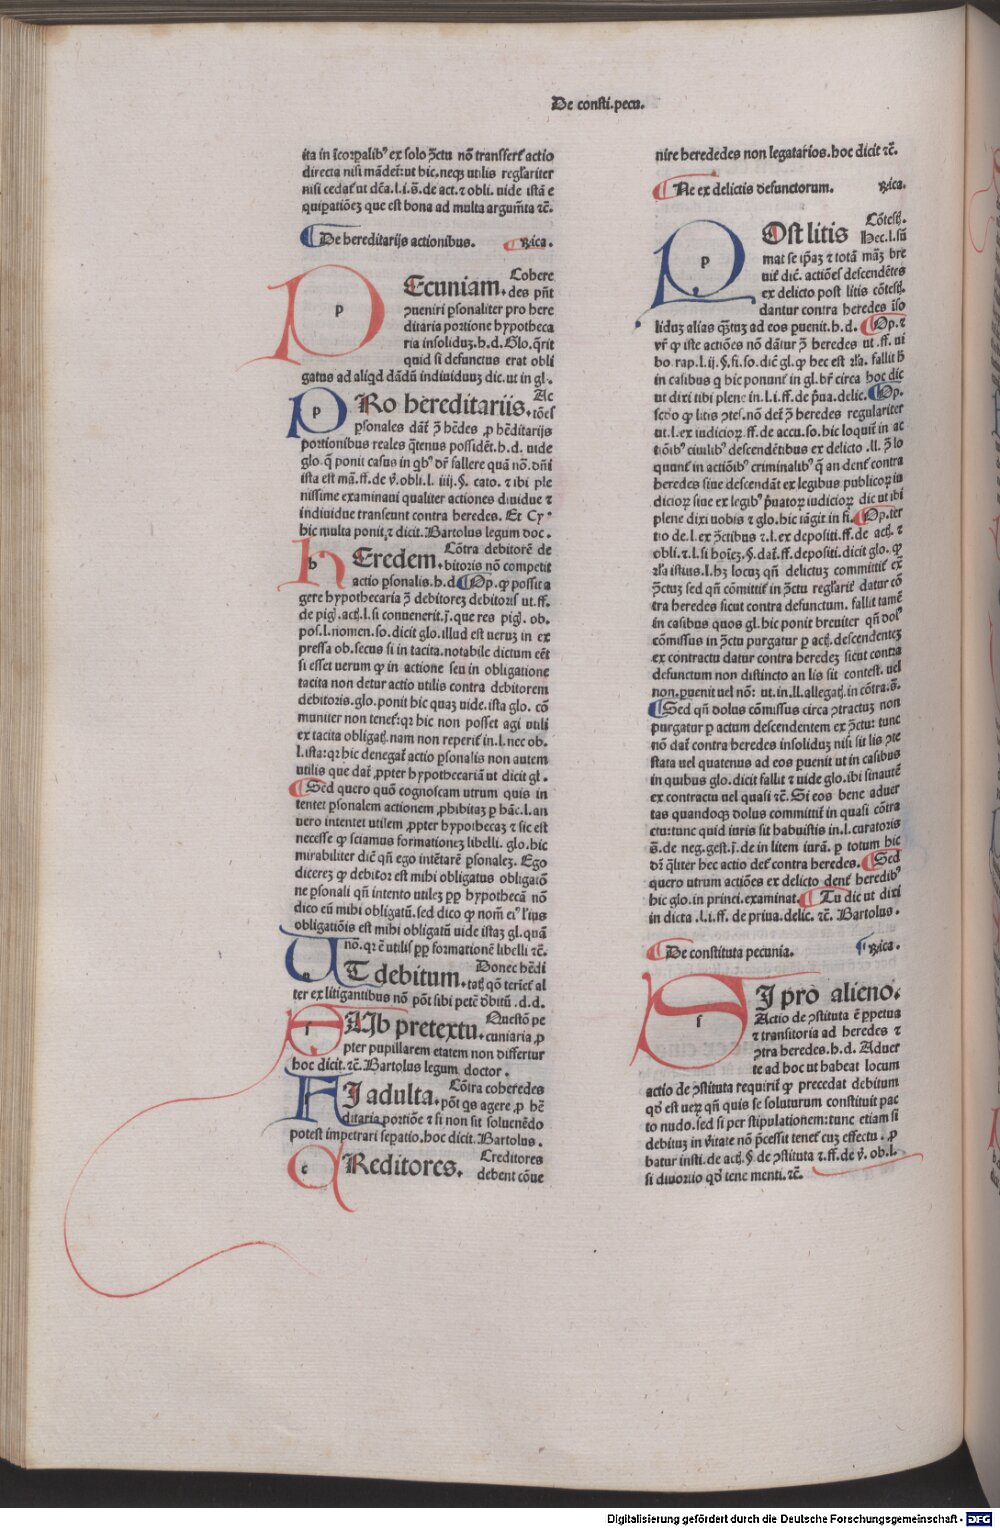 De consti.pecu.
ita in īcorꝑalibꝰ ex solo ꝓctu nō transfert̄ actio
directa nisi mādet̄: ut hic. neqꝫ utilis regl̄ariter
nisi cedat̄ ut dc̄a.l.i.ō.de act.⁊ obli. uide istā e
quiꝑatiōeꝫ que est bona ad multa argum̄ta ⁊c̄.
De hereditarijs actionibus. Rica.
PEcuniam. Cohere
des pn̄t
ꝯueniri ꝑsonaliter pro here
ditaria portione hypotheca
ria insoliduꝫ.h.d. Glo. q̄rit
quid si defunctus erat obli
gatus ad aliqd dādū indiuiduuꝫ dic. ut in gl.
PRo hereditariis. Ac
tōes
ꝑsonales dāt̄ ꝯ̄ hēdes ꝓ hēditarijs
portionibus reales q̄tenus possidēt.h.d. uide
glo. q̄ ponit casus in qbꝰ dr̄ fallere quā nō. dn̄i
ista est mā.ff.de v̄.obli.l. iiij.§. cato. ⁊ ibi ple
nissime examinaui qualiter actiones diuidue ⁊
indiuidue transeunt contra heredes. Et Cyꝰ
hic multa ponit, ⁊ dicit. Bartolus legum doc.
hEredem. Cōtra debitorē de
bitoris nō competit
actio ꝑsonalis.h.d. Op. ꝙ possit a
gere hypothecaria ꝯ̄ debitoreꝫ debitoris ut.ff.
de pig. act.l.si conuenerit.j. que res pig. ob.
pos.l.nomen.so.dicit glo.illud est ueruꝫ in ex
pressa ob.secus si in tacita.notabile dictum eēt
si esset uerum ꝙ in actione seu in obligatione
tacita non detur actio utilis contra debitorem
debitoris.glo.ponit hic quaꝫ uide.ista glo. cō
muniter non tenet̄: qꝛ hic non posset agi utili
ex tacita obligat. nam non reperit̄ in.l. nec ob.
l.ista: qꝛ hic denegat̄ actio ꝑsonalis non autem
utilis que dat̄ ꝓpter hypothecariā ut dicit gl.
Sed quero quō cognoscam utrum quis in
tentet ꝑsonalem actionem ꝓhibitaꝫ ꝑ hāc.l. an
uero intentet utilem ꝓpter hypothecaꝫ ⁊ sic est
necesse ꝙ sciamus formationeꝫ libelli. glo. hic
mirabiliter dic̄ qn̄ ego intētarē ꝑsonaleꝫ. Ego
dicereꝫ ꝙ debitor est mihi obligatus obligatō
ne ꝑsonali qn̄ intento utileꝫ ꝓꝑ hypothecā nō
dico eū mihi obligatū.sed dico ꝙ nom̄ eiꝰ l'ius
obligatiōis est mihi obligatū uide istaꝫ gl. quā
nō. qꝛ ē utilis ꝓꝑ formationē libelli ⁊c̄.
UT debitum. Donec hēdi
tas qō teriet̄ al
ter ex litigantibus nō pōt sibi petē d̄bitū.d.d.
SUb pretextu. Questō pe
cuniaria ꝓ
pter pupillarem etatem non differtur
hoc dicit.⁊c̄. Bartolus legum doctor.
SI adulta. Cōtra coheredes
pōt qs agere ꝓ hē
ditaria portiōe ⁊ si non sit soluendo
potest impetrari sepatio.hoc dicit. Bartolus.
CReditores. Creditores
debent cōue
nire herededes non legatarios.hoc dicit ⁊c̄.
Ne ex delictis defunctorum. Rica.
POst litis Cōtest.
Hec.l.sū
mat se ip̄aꝫ ⁊ totā māꝫ bre
uit̄ dic̄. actiōes descendētes
ex delicto post litis cōtest.
dantur contra heredes īso
liduꝫ alias q̄tuꝫ ad eos ꝑuenit.h.d. Op.⁊
vr̄ ꝙ iste actiōes nō dātur ꝯ̄ heredes ut .ff. ui
bo.rap.l.ij.§.fi.so.dic̄ gl. ꝙ hec est rl̄a. fallit h̄
in casibus q hic ponunt̄ in gl. br̄ circa hoc dic
ut dixi tibi plene in.l.i.ff.de p̄ua.delic. Op.
scdo ꝙ litis ꝯtes. nō det̄ ꝯ̄ heredes regulariter
ut.l.ex iudicioꝝ.ff.de accu.so.hic loquit̄ in ac
tiōibꝰ ciuilibꝰ descendētibus ex delicto .ll. ꝯ̄ lo
quunt̄ in actiōibꝰ criminalibꝰ q̄ an dent̄ contra
heredes siue descendāt ex legibus publicoꝝ iu
dicioꝝ siue ex legibꝰ p̄uatoꝝ iudicioꝝ dic ut ibi
plene dixi uobis ⁊ glo. hic tāgit in fi. Op. ter
tio de.l.ex ꝯctibus ⁊.l.ex depositi.ff.de act. ⁊
obli.⁊.l.si hoīeꝫ.§.dat̄.ff.depositi.dicit glo. ꝙ
rl̄a istius.l.hꝫ locuꝫ qn̄ delictuꝫ committit̄ ex̄
ꝯctuꝫ sed qn̄ cōmittit̄ in ꝯctu regl̄arit̄ datur cō
tra heredes sicut contra defunctum. fallit tamē
in casibus quos gl. hic ponit breuiter qn̄ dolꝰ
cōmissus in ꝯctu purgatur ꝑ act. descendenteꝫ
ex contractu datur contra heredeꝫ sicut contra
defunctum non distincto an lis sit contest. uel
non. ꝑuenit uel nō: ut.in.ll.allegat.in cōtra.ō.
Sed qn̄ dolus cōmissus circa ꝯtractuꝫ non
purgatur ꝑ actum descendentem ex ꝯctu: tunc
nō dat̄ contra heredes insoliduꝫ nisi sit lis ꝯte
stata uel quatenus ad eos ꝑuenit ut in casibus
in quibus glo.dicit fallit ⁊ uide glo.ibi sinautē
ex contractu uel quasi ⁊c̄. Si eos bene aduer
tas quandoqꝫ dolus committit̄ in quasi cōtra
ctu: tunc quid iuris sit habuistis in.l. curatoris
ō.de neg.gest.j.de in litem iurā. ꝑ totum hic
dr̄ qliter hec actio det̄ contra heredes. Sed
quero utrum actiōes ex delicto dent̄ heredibꝰ
hic glo.in princi.examinat. Tu dic ut dixi
in dicta .l.i.ff.de priua.delic. ⁊c̄. Bartolus.
De constituta pecunia. Rica.
SI pro alieno.
Actio de ꝯstituta ē ꝑpetua
⁊ transitoria ad heredes ⁊
ꝯtra heredes.h.d. Aduer
te ad hoc ut habeat locum
actio de ꝯstituta requirit̄ ꝙ precedat debitum
qd̄ est ueꝝ qn̄ quis se soluturum constituit pac
to nudo.sed si per stipulationem: tunc etiam si
debituꝫ in v̄itate nō p̄cessit tenet̄ cuꝫ effectu. ꝓ
batur insti.de act.§.de ꝯstituta ⁊.ff.de v̄.ob.l.
si diuortio qd̄ tene menti.⁊c̄.
Digitalisierung gefördert durch die Deutsche Forschungsgemeinschaft - DFG